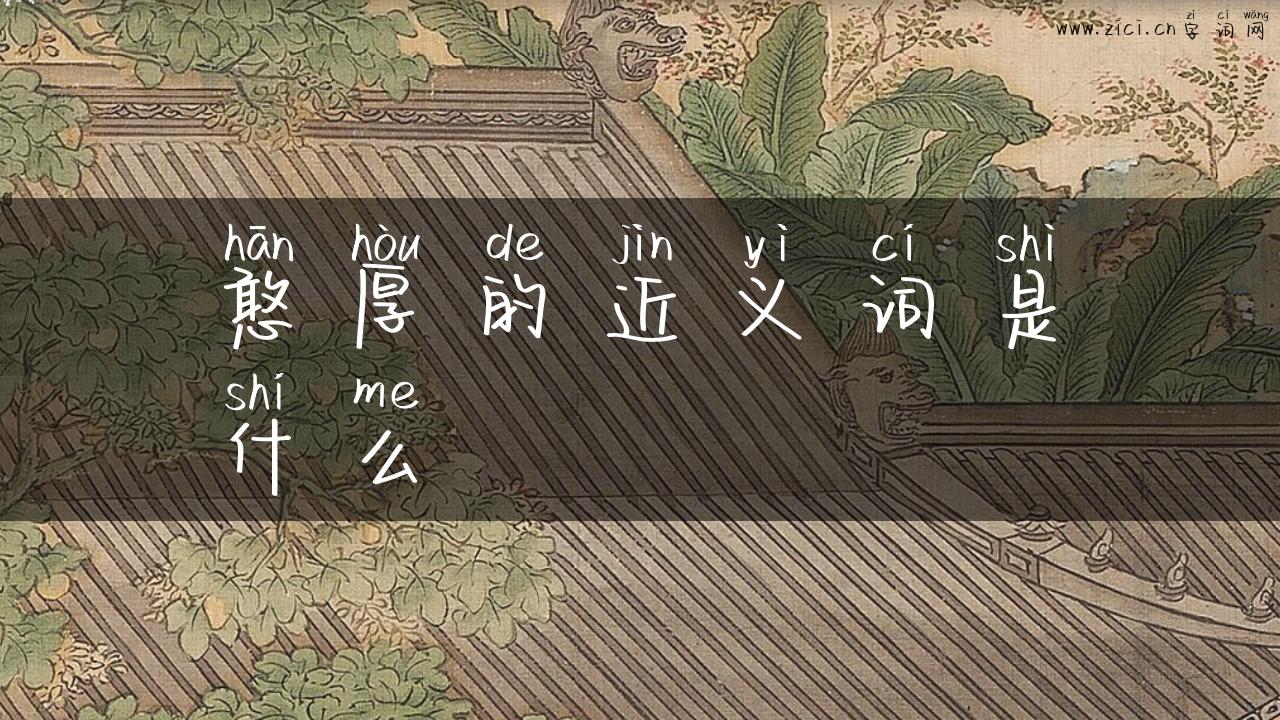 zì cí wǎng
www.zici.cn 字词网
hān hòu de jìn yì cí shì
憨厚的近义词是
shí me
什么